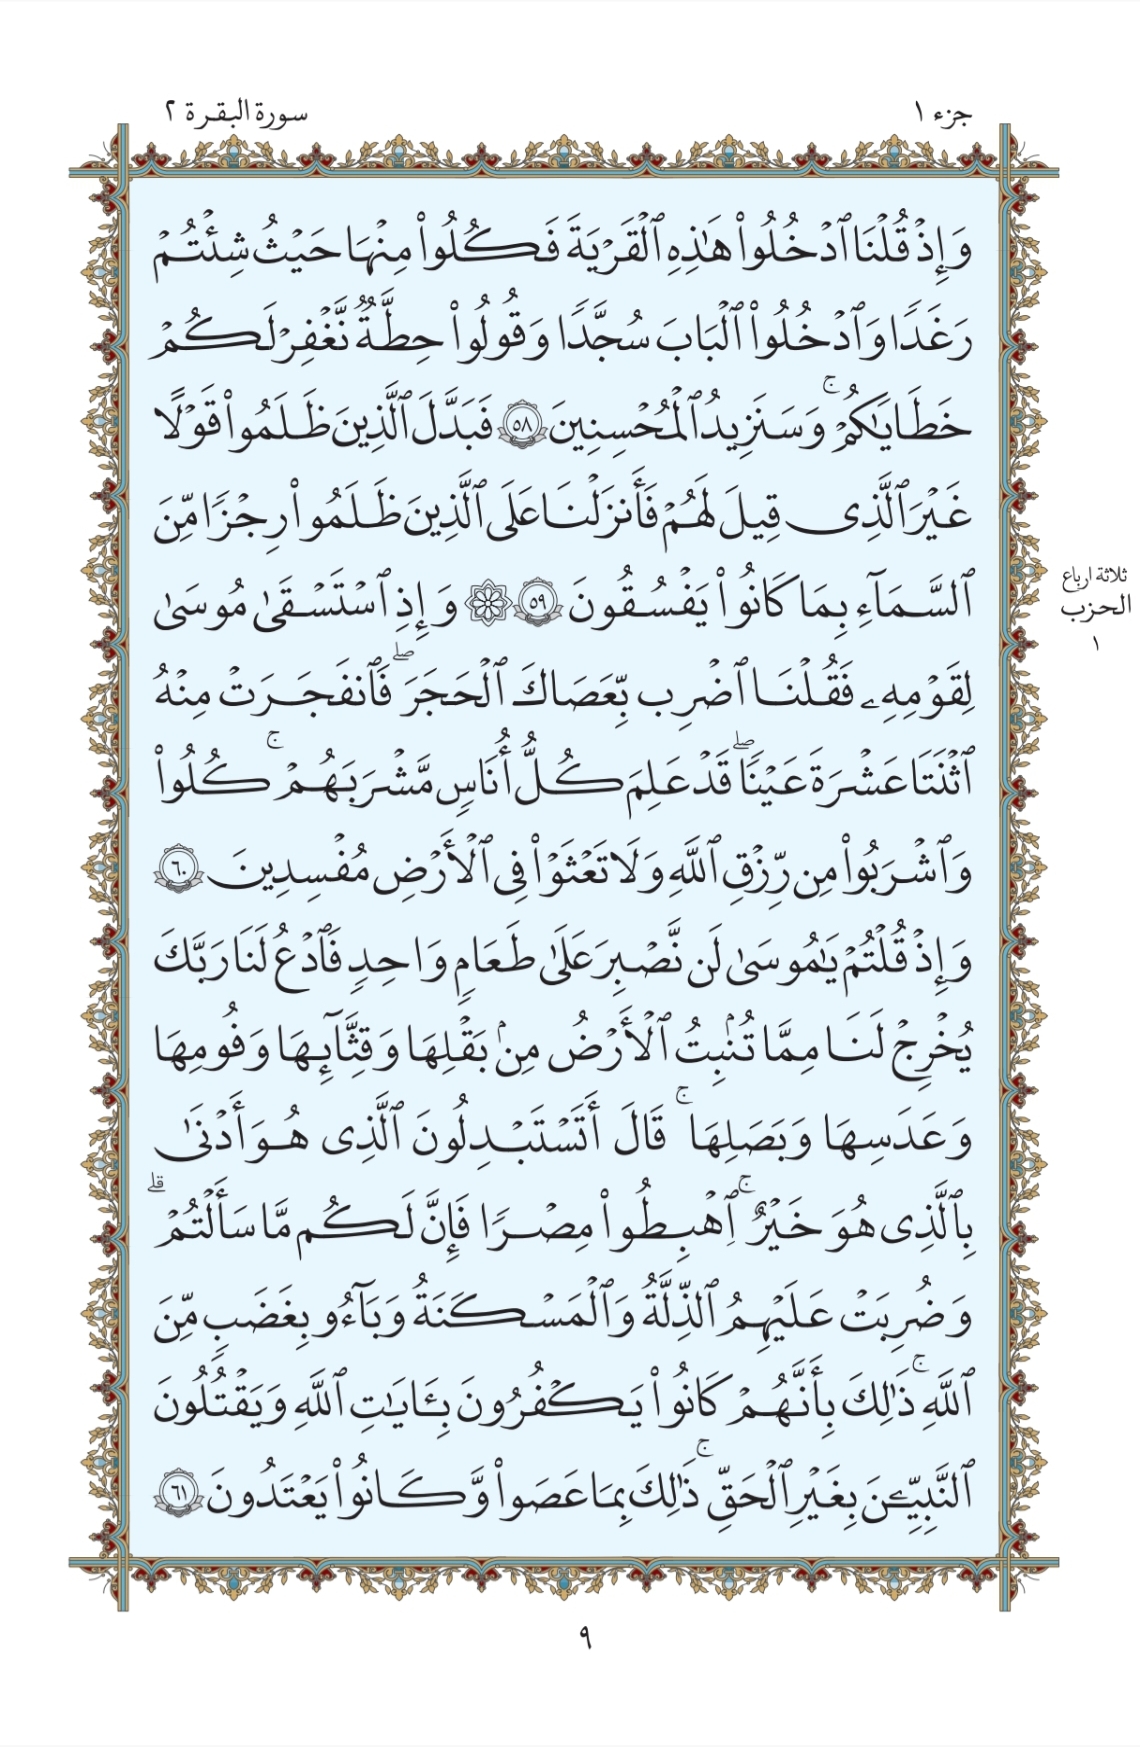 جزء ١
سورة البقرة ٢
وَإِذْ قُلْنَا ٱدْخُلُوا۟ هَٰذِهِ ٱلْقَرْيَةَ فَكُلُوا۟ مِنْهَا حَيْثُ شِئْتُمْ
رَغَدًا وَٱدْخُلُوا۟ ٱلْبَابَ سُجَّدًا وَقُولُوا۟ حِطَّةٌ نَّغْفِرْ لَكُمْ
خَطَايَٰكُمْ ۚ وَسَنَزِيدُ ٱلْمُحْسِنِينَ ٥٨ فَبَدَّلَ ٱلَّذِينَ ظَلَمُوا۟ قَوْلًا
غَيْرَ ٱلَّذِى قِيلَ لَهُمْ فَأَنزَلْنَا عَلَى ٱلَّذِينَ ظَلَمُوا۟ رِجْزًا مِّنَ
ٱلسَّمَآءِ بِمَا كَانُوا۟ يَفْسُقُونَ ٥٩ ۞ وَإِذِ ٱسْتَسْقَىٰ مُوسَىٰ
لِقَوْمِهِۦ فَقُلْنَا ٱضْرِب بِّعَصَاكَ ٱلْحَجَرَ ۖ فَٱنفَجَرَتْ مِنْهُ
ٱثْنَتَا عَشْرَةَ عَيْنًا ۖ قَدْ عَلِمَ كُلُّ أُنَاسٍ مَّشْرَبَهُمْ ۚ كُلُوا۟
وَٱشْرَبُوا۟ مِن رِّزْقِ ٱللَّهِ وَلَا تَعْثَوْا۟ فِى ٱلْأَرْضِ مُفْسِدِينَ ٦٠
وَإِذْ قُلْتُمْ يَٰمُوسَىٰ لَن نَّصْبِرَ عَلَىٰ طَعَامٍ وَاحِدٍ فَٱدْعُ لَنَا رَبَّكَ
يُخْرِجْ لَنَا مِمَّا تُنۢبِتُ ٱلْأَرْضُ مِنۢ بَقْلِهَا وَقِثَّآئِهَا وَفُومِهَا
وَعَدَسِهَا وَبَصَلِهَا ۚ قَالَ أَتَسْتَبْدِلُونَ ٱلَّذِى هُوَ أَدْنَىٰ
بِٱلَّذِى هُوَ خَيْرٌ ۚ ٱهْبِطُوا۟ مِصْرًا فَإِنَّ لَكُم مَّا سَأَلْتُمْ ۗ
وَضُرِبَتْ عَلَيْهِمُ ٱلذِّلَّةُ وَٱلْمَسْكَنَةُ وَبَآءُو بِغَضَبٍ مِّنَ
ٱللَّهِ ۚ ذَٰلِكَ بِأَنَّهُمْ كَانُوا۟ يَكْفُرُونَ بِـَٔايَٰتِ ٱللَّهِ وَيَقْتُلُونَ
ٱلنَّبِيِّـۧنَ بِغَيْرِ ٱلْحَقِّ ۚ ذَٰلِكَ بِمَا عَصَوا۟ وَّكَانُوا۟ يَعْتَدُونَ ٦١
ثلاثة ارباع
الحزب
١
٩